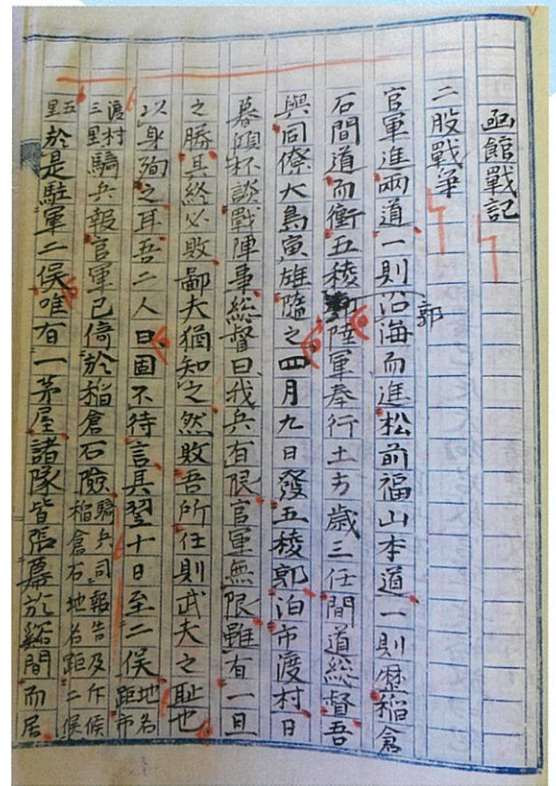 函館戰記
二股戰爭
官軍進兩道一則沿海而進松前福山本道一則歷稲倉
石間道而衝五稜郭陸軍奉行土方歳三任間道総督吾
與同僚大鳥寅雄隨之四月九日發五稜郭泊市渡村日
暮傾杯談戰陣事総督曰我兵有限官軍無限雖有一旦
之勝其終必敗鄙夫猶知之然敗吾所任則武夫之耻也
以身殉之耳吾二人曰固不待言其翌十日至二俣地名距市
渡村三里騎兵報官軍已倚於稲倉石險騎兵司報告及斥候稲倉石地名距二俣
五里於是駐軍二俣唯有一茅屋諸隊皆張幕於谿間而居